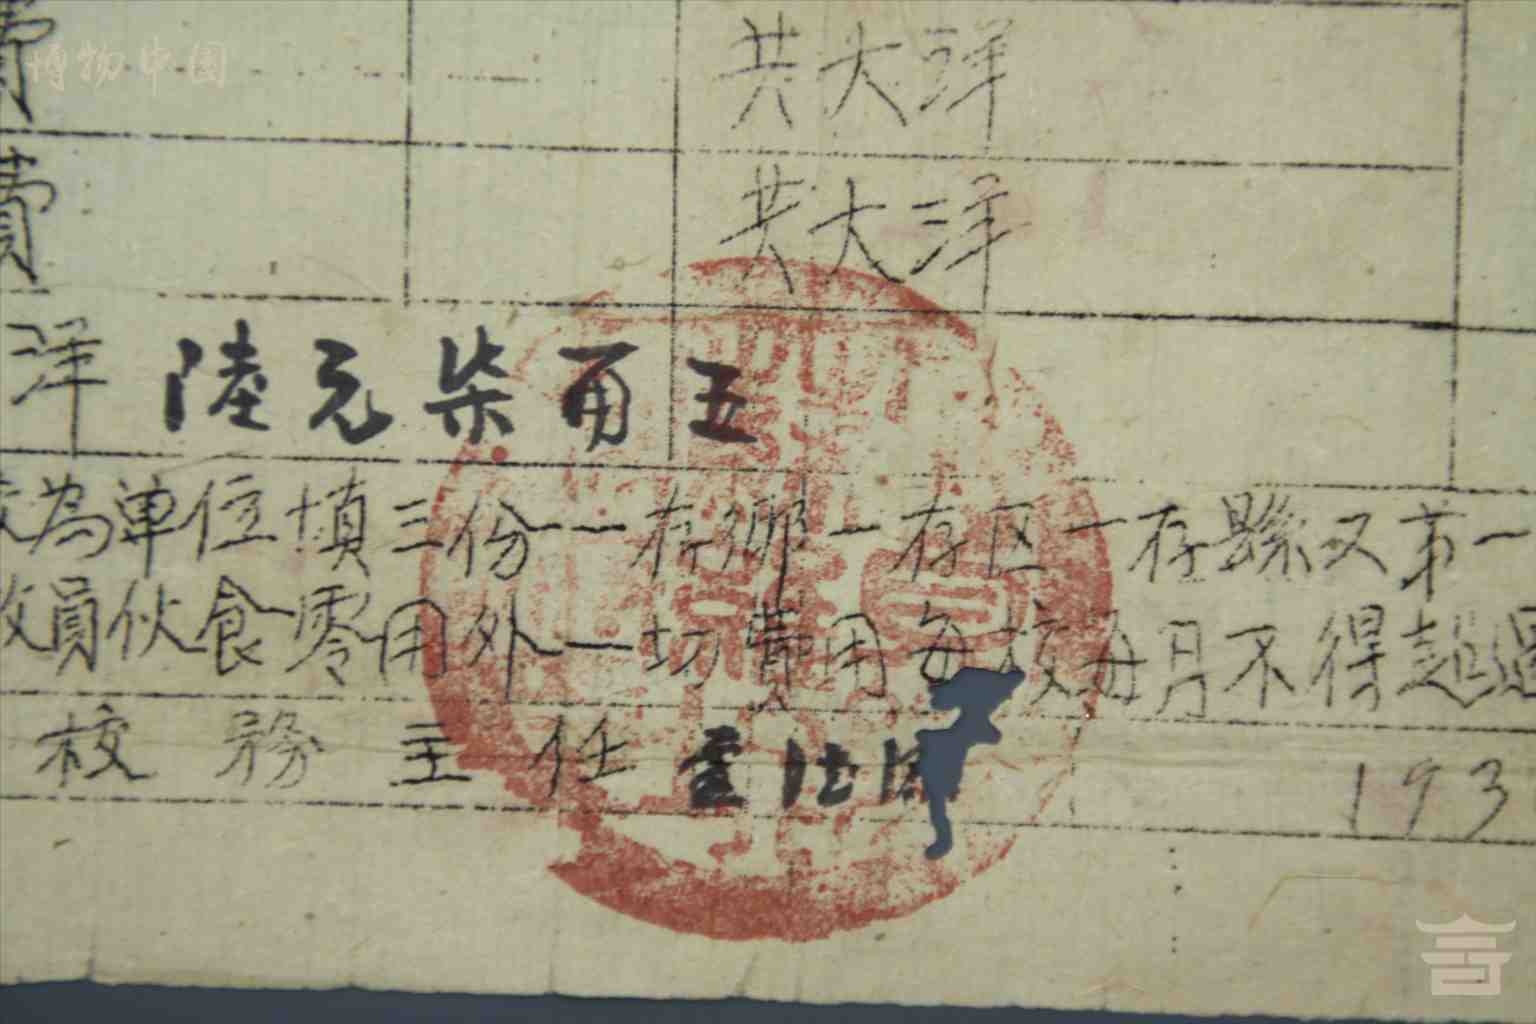 博物中国
費 共大洋
費 共大洋
洋 陸元柒角五
為單位填三份一存鄉一存区一存縣又苐一
教員伙食零用外一切費用每校每月不得超過
校務主任
193